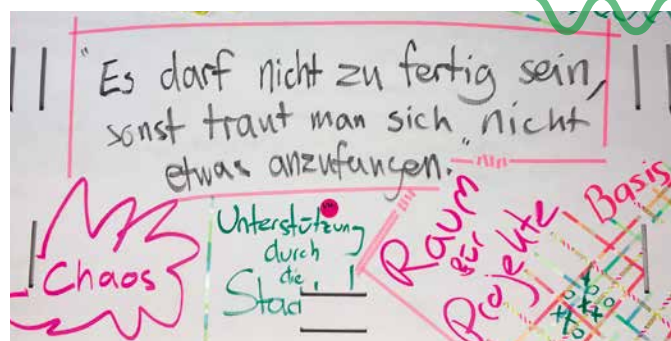 "Es darf nicht zu fertig sein,
sonst traut man sich nicht
etwas anzufangen."
Chaos
Unterstützung
durch
die
Raum
für
Projekte
Basis